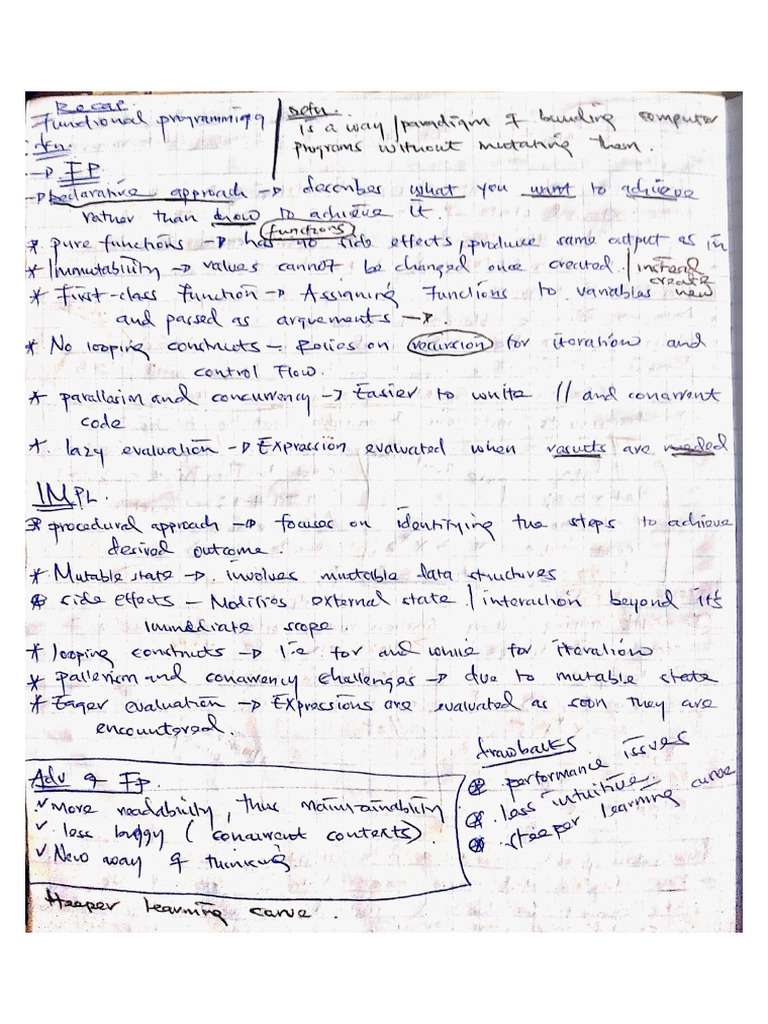 Recap.
Functional programming
dfn:
Defn.
is a way / paradigm of building computer
programs without mutating them.
→ FP
→ Declarative approach → describes what you want to achieve
rather than know to achieve it
(functions)
* pure functions → has no side effects, produce same output as in
* Immutability → values cannot be changed once created. / instead
create
new
* First-class Function → Assigning Functions to variables
and passed as arguements → .
* No looping constructs – Relies on recursion for iteration and
control Flow.
* parallelism and concurrency → Easier to write // and concurrent
code
* lazy evaluation → Expression evaluated when results are needed
IMPL.
* procedural approach → focuses on identifying the steps to achieve
desired outcome.
* Mutable state → involves mutable data structures
* side effects – Modifies external state / interaction beyond its
immediate scope
* looping constructs → i.e for and while for iteration
* pallerism and concurrency challenges → due to mutable state
* Eager evaluation → Expressions are evaluated as soon they are
encountered.
Adv of Fp.
✓ More readability, thus maintainability
✓ less buggy (concurrent contexts).
✓ New way of thinking
drawbacks
* performance issues
* less intuitive.
* steeper learning curve
steeper learning curve.